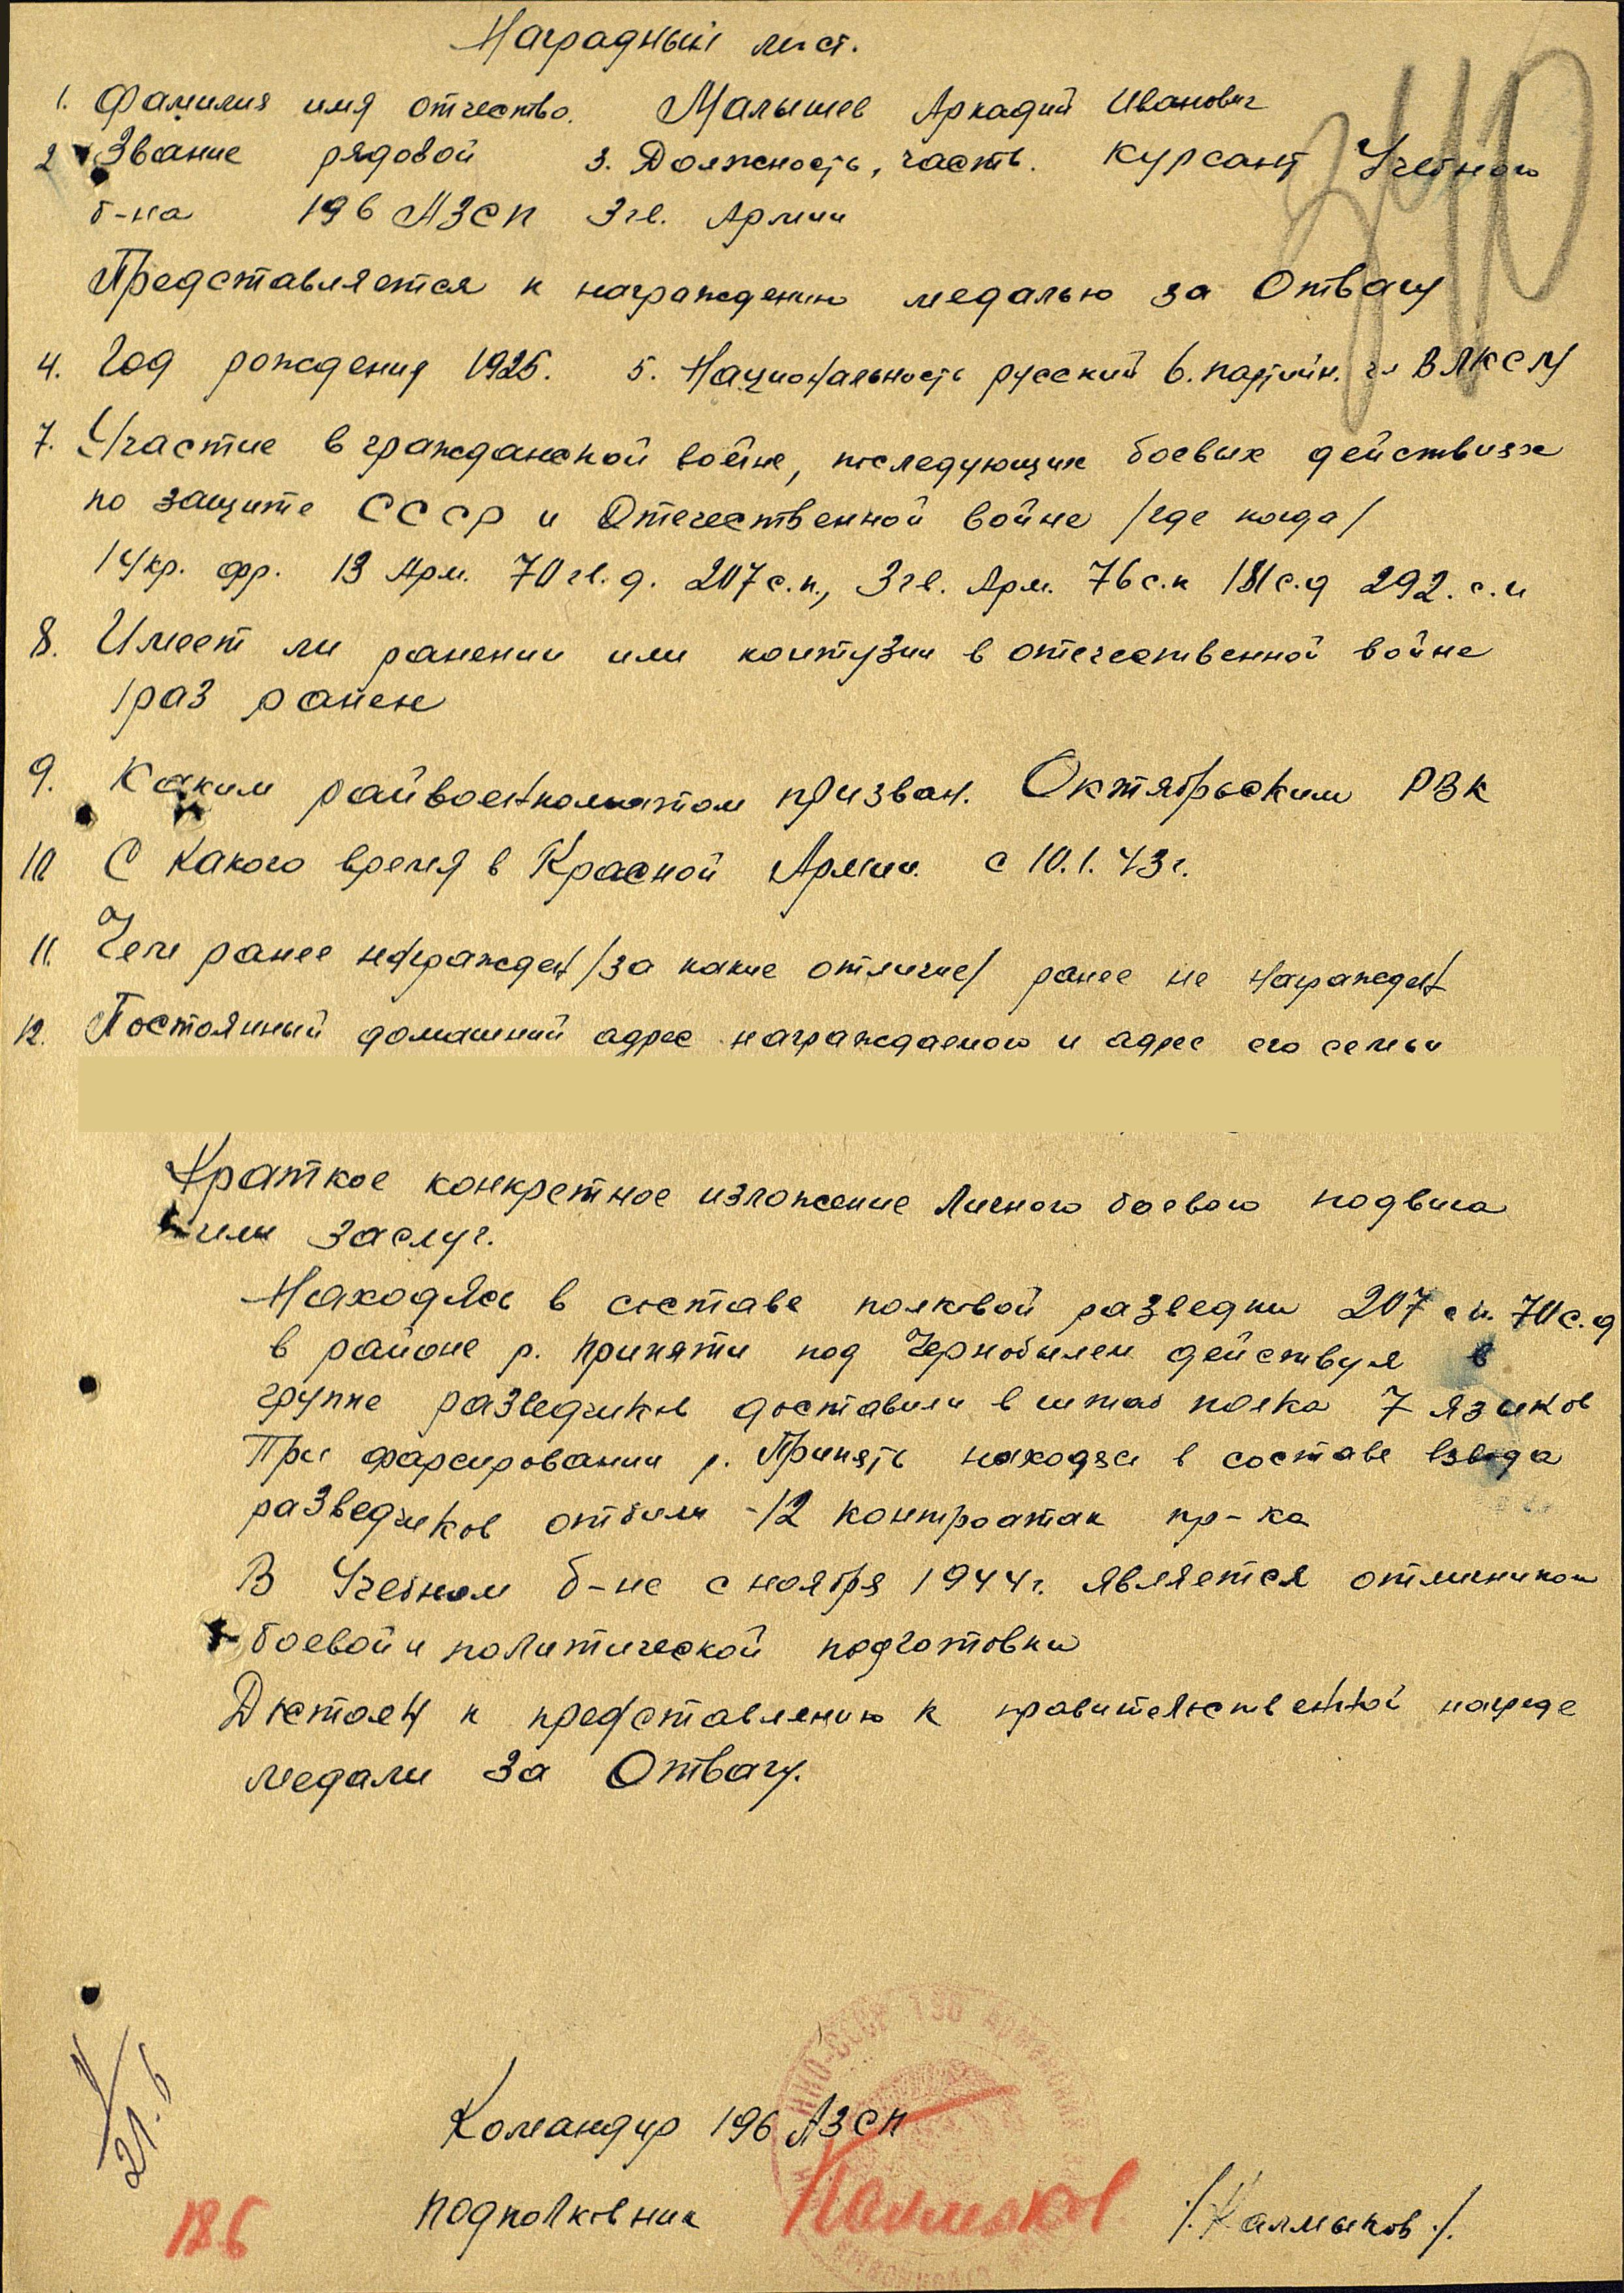 Наградный лист.
1. Фамилия имя отчество. Малышев Аркадий Иванович
2 Звание рядовой 3. Должность, часть. Курсант Учебного
б-на 196 АЗСП 3 гв. Армии
Представляется к награждению медалью за Отвагу
4. Год рождения 1925. 5. Национальность русский 6. партийн. чл ВЛКСМ
7. Участие в гражданской войне, последующих боевых действиях
по защите СССР и Отечественной войне /где когда/
1 Укр. фр. 13 Арм. 70 гв. д. 207 с.п., 3 гв. Арм. 76 с.к 181 с.д 292. с.п
8. Имеет ли ранении или контузии в отечественной войне
1 раз ранен
9. Каким райвоенкоматом призван. Октябрьским РВК
10 С какого время в Красной Армии. с 10.1.43 г.
11. Чем ранее награжден /за какие отличие/ ранее не награжден
12. Постоянный домашний адрес награждаемого и адрес его семьи
Краткое конкретное изложение личного боевого подвига
или заслуг.
Находясь в составе полковой разведки 207 с.п. 70 с.д
в районе р. Припяти под Чернобылем действуя в
группе разведчиков доставили в штаб полка 7 языков
При фарсировании р. Припять находясь в составе взвода
разведчиков отбили 12 контратак пр-ка
В Учебном б-не с ноября 1944 г. является отличником
боевой и политической подготовки
Достоен к представлению к правительственной награде
медали За Отвагу.
Командир 196 АЗСП
подполковник Калмыков /.Калмыков./
21.6
186
340